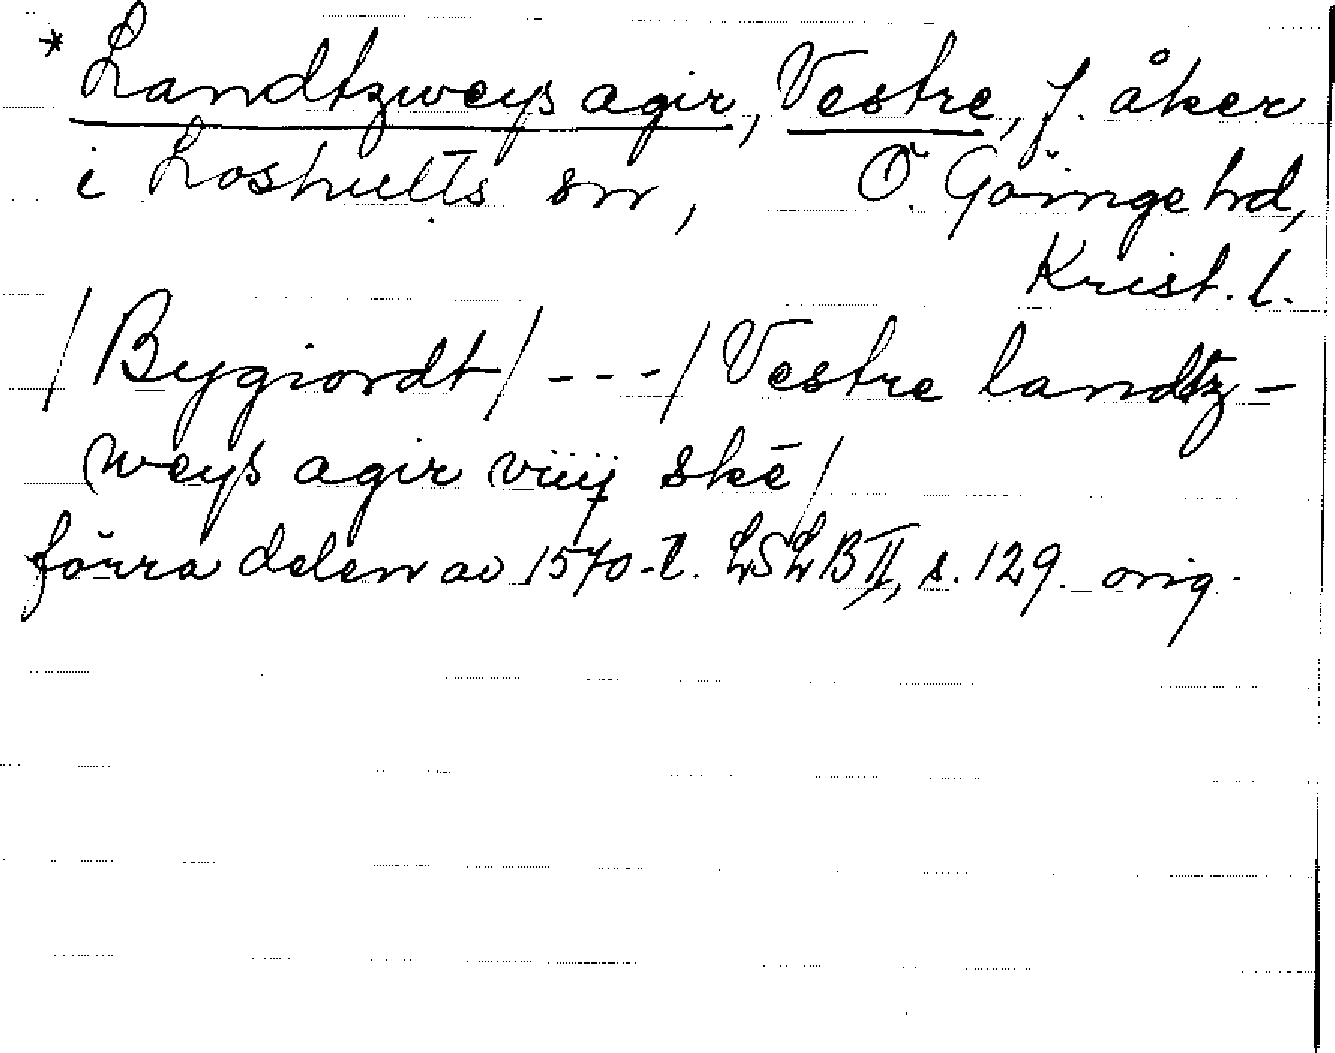 * Landtzweys agir, Vestre, f. åker
i Loshults sn, Ö. Göinge hd,
Krist. l.
/Bygiordt/ - - - / Vestre landtz-
weys agir viiij skē/
förra delen av 1570-t. LSLB II, s. 129. orig.